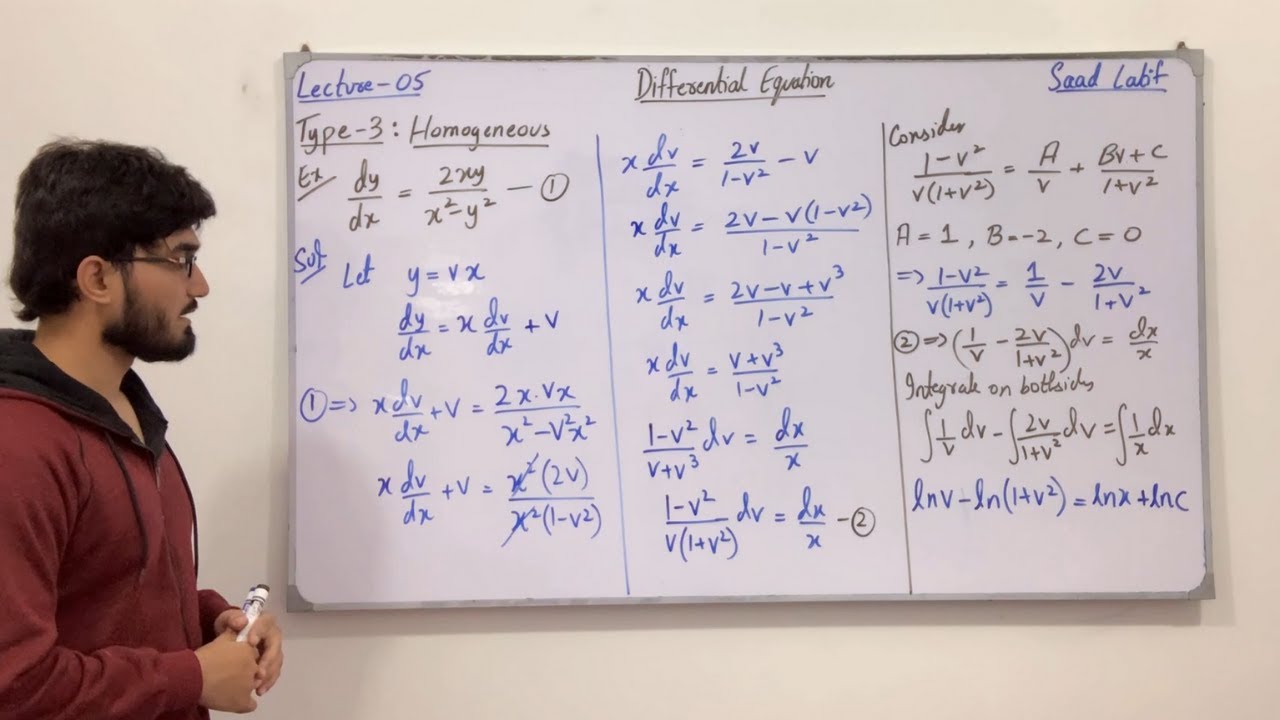 Lecture-05
Differential Equation
Saad Latif
Type-3 : Homogeneous
Ex dy/dx = 2xy/(x²-y²) — ①
Sol Let y = vx
dy/dx = x dv/dx + v
① => x dv/dx + v = 2x.vx/(x²-v²x²)
x dv/dx + v = x²(2v)/(x²(1-v²))
x dv/dx = 2v/(1-v²) - v
x dv/dx = (2v-v(1-v²))/(1-v²)
x dv/dx = (2v-v+v³)/(1-v²)
x dv/dx = (v+v³)/(1-v²)
(1-v²)/(v+v³) dv = dx/x
(1-v²)/(v(1+v²)) dv = dx/x - ②
Consider
(1-v²)/(v(1+v²)) = A/v + (Bv+C)/(1+v²)
A = 1 , B = -2 , C = 0
=> (1-v²)/(v(1+v²)) = 1/v - 2v/(1+v²)
② => (1/v - 2v/(1+v²)) dv = dx/x
Integrate on bothsides
∫ 1/v dv - ∫ 2v/(1+v²) dv = ∫ 1/x dx
lnv - ln(1+v²) = lnx + lnc